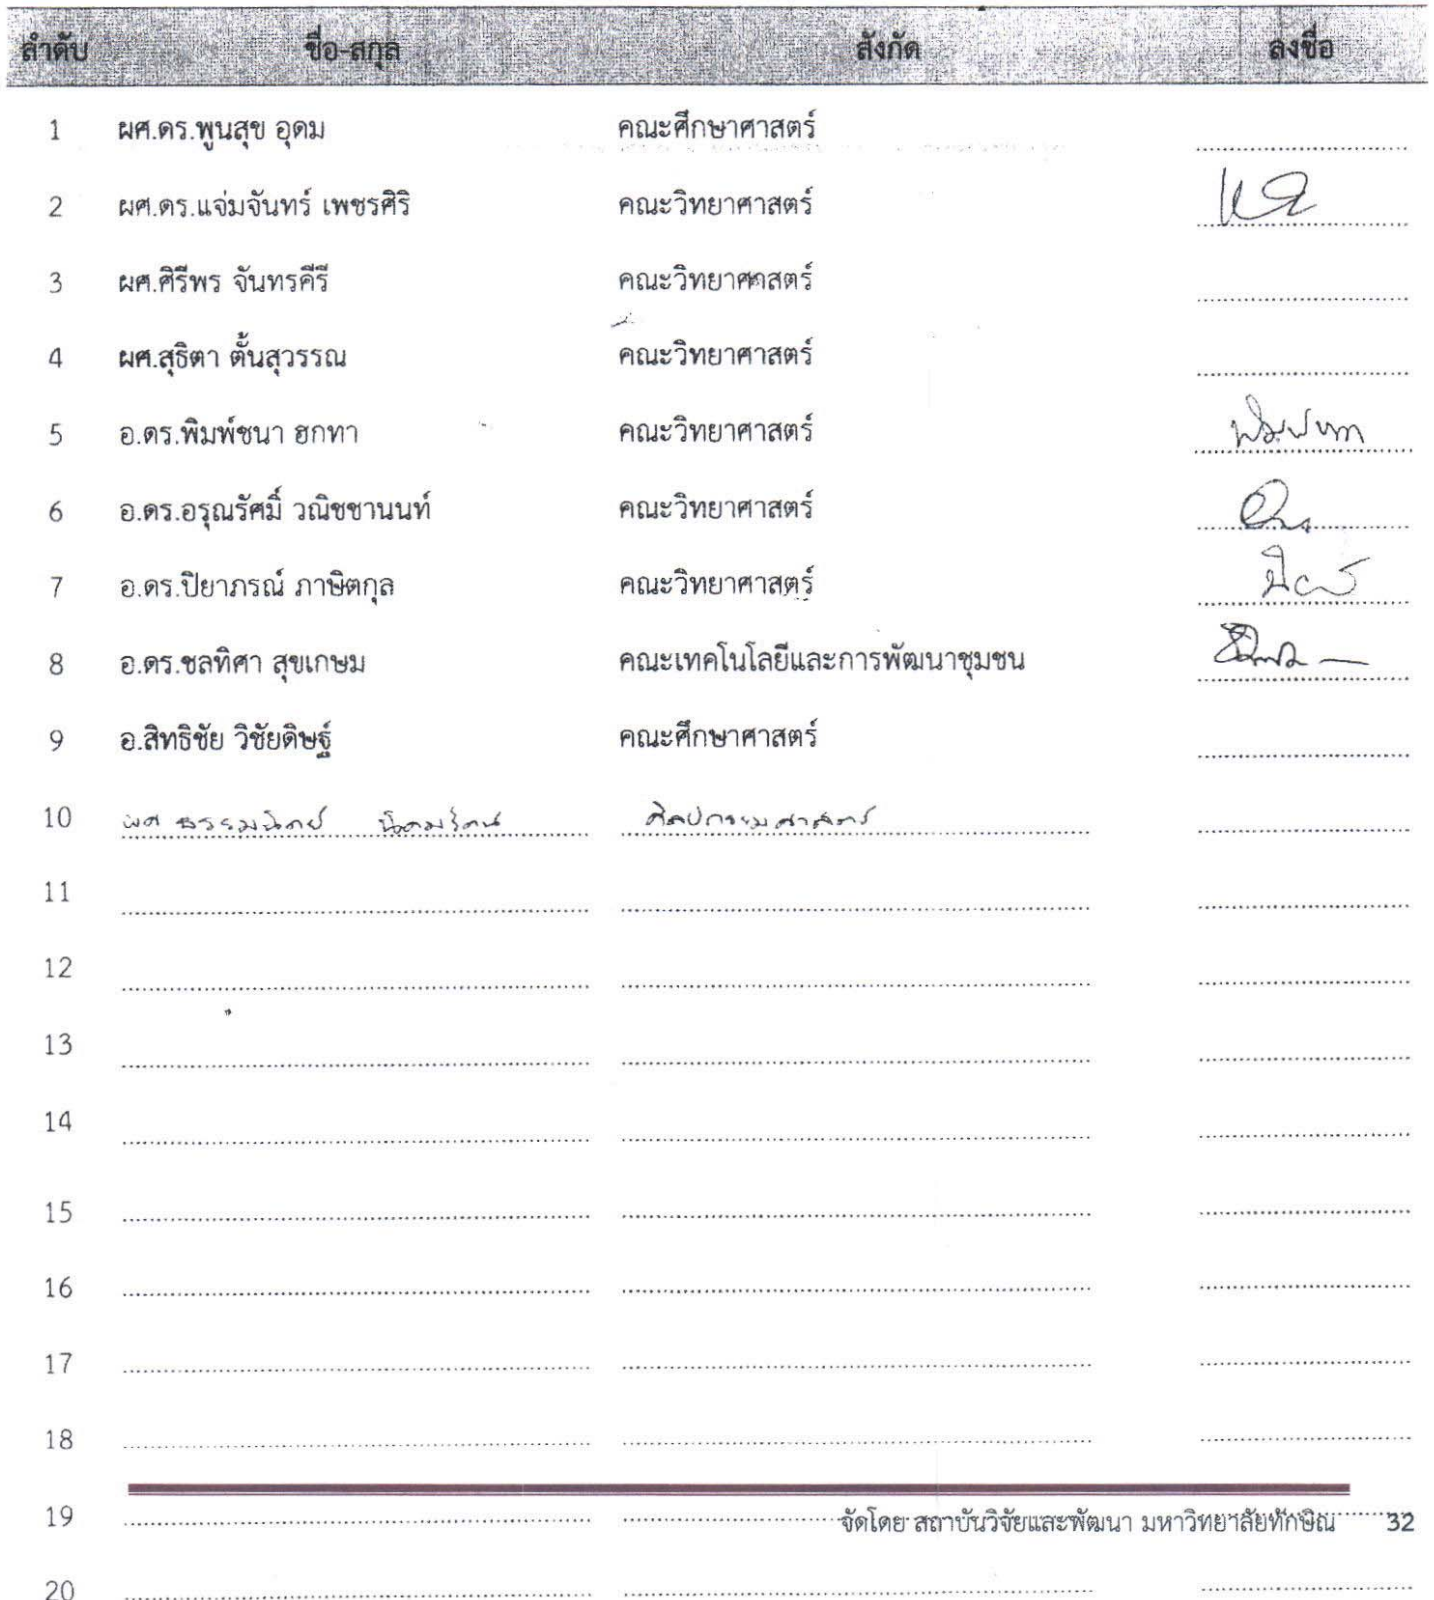 ลำดับ ชื่อ-สกุล สังกัด ลงชื่อ
1 ผศ.ดร.พูนสุข อุดม คณะศึกษาศาสตร์
2 ผศ.ดร.แจ่มจันทร์ เพชรศิริ คณะวิทยาศาสตร์
3 ผศ.ศิรีพร จันทรคีรี คณะวิทยาศาสตร์
4 ผศ.สุธิตา ตั้นสุวรรณ คณะวิทยาศาสตร์
5 อ.ดร.พิมพ์ชนา ฮกทา คณะวิทยาศาสตร์
6 อ.ดร.อรุณรัศมิ์ วณิชชานนท์ คณะวิทยาศาสตร์
7 อ.ดร.ปิยาภรณ์ ภาษิตกุล คณะวิทยาศาสตร์
8 อ.ดร.ชลทิศา สุขเกษม คณะเทคโนโลยีและการพัฒนาชุมชน
9 อ.สิทธิชัย วิชัยดิษฐ์ คณะศึกษาศาสตร์
10 ผศ ธรรมนิตย์ นิคมรัตน์ ศิลปกรรมศาสตร์
11
12
13
14
15
16
17
18
19
จัดโดย สถาบันวิจัยและพัฒนา มหาวิทยาลัยทักษิณ 32
20